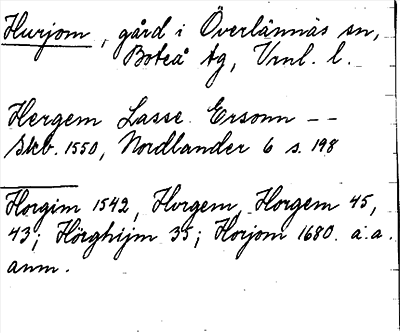 Hurjom, gård i Överlännäs sn,
Boteå tg, Vrnl. l.
Hergem Lasse Ersonn – –
Skb. 1550, Nordlander 6 s. 198
Horgim 1542, Horgem, Horgem 45,
43; Hörghijm 35; Horjom 1680. a.a.
anm.